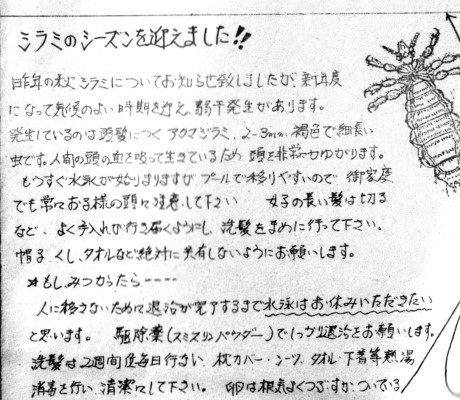 シラミのシーズンを迎えました!!
昨年の秋 シラミについてお知らせ致しましたが、新年度
になって気候のよい時期を迎え、若干発生があります。
発生しているのは頭髪につくアタマジラミ、2~3mm、褐色で細長い
虫です。人間の頭の血を吸って生きているため 頭を非常にかゆがります。
もうすぐ水泳が始まりますが プールで移りやすいので 御家庭
でも常にお子様の頭に注意して下さい 女子の長い髪は切る
など、よく手入れが行き届くようにし、洗髪をまめに行って下さい。
帽子、くし、タオルなど絶対に共有しないようにお願いします。
★もし、みつかったら----
人に移さないために退治が完了するまで水泳はお休みいただきたい
と思います。 駆除薬(スミスリンパウダー)でしっかり退治をお願いします。
洗髪は2週間位毎日行ない、枕カバー・シーツ、タオル、下着等熱湯
消毒を行い、清潔にして下さい。 卵は根気よくつぶすか、ついている